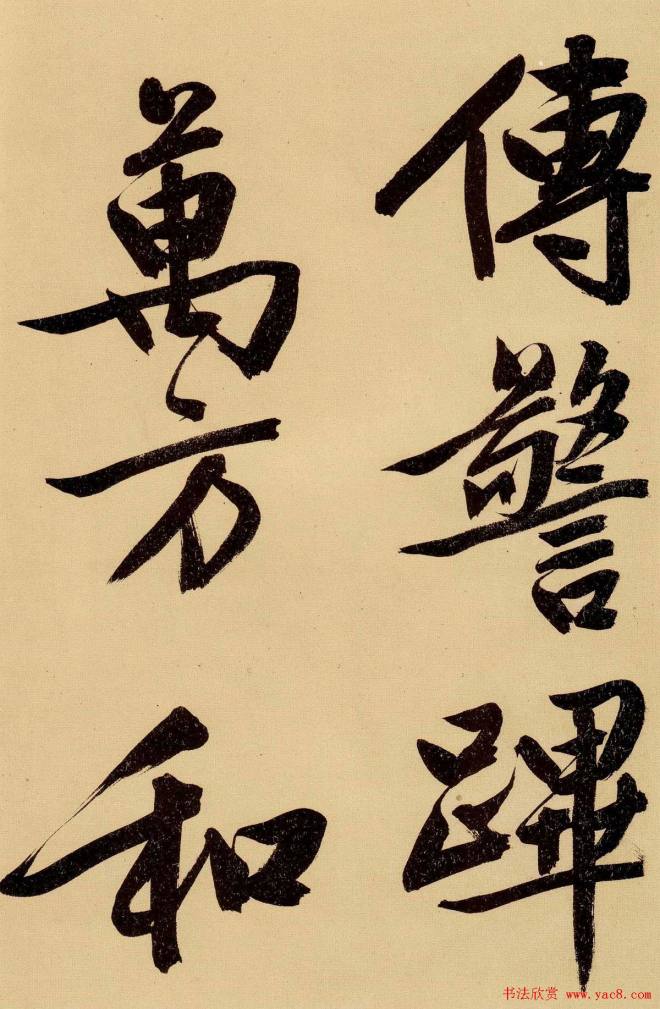 傳警蹕
萬方和
书法欣赏 www.yac8.com